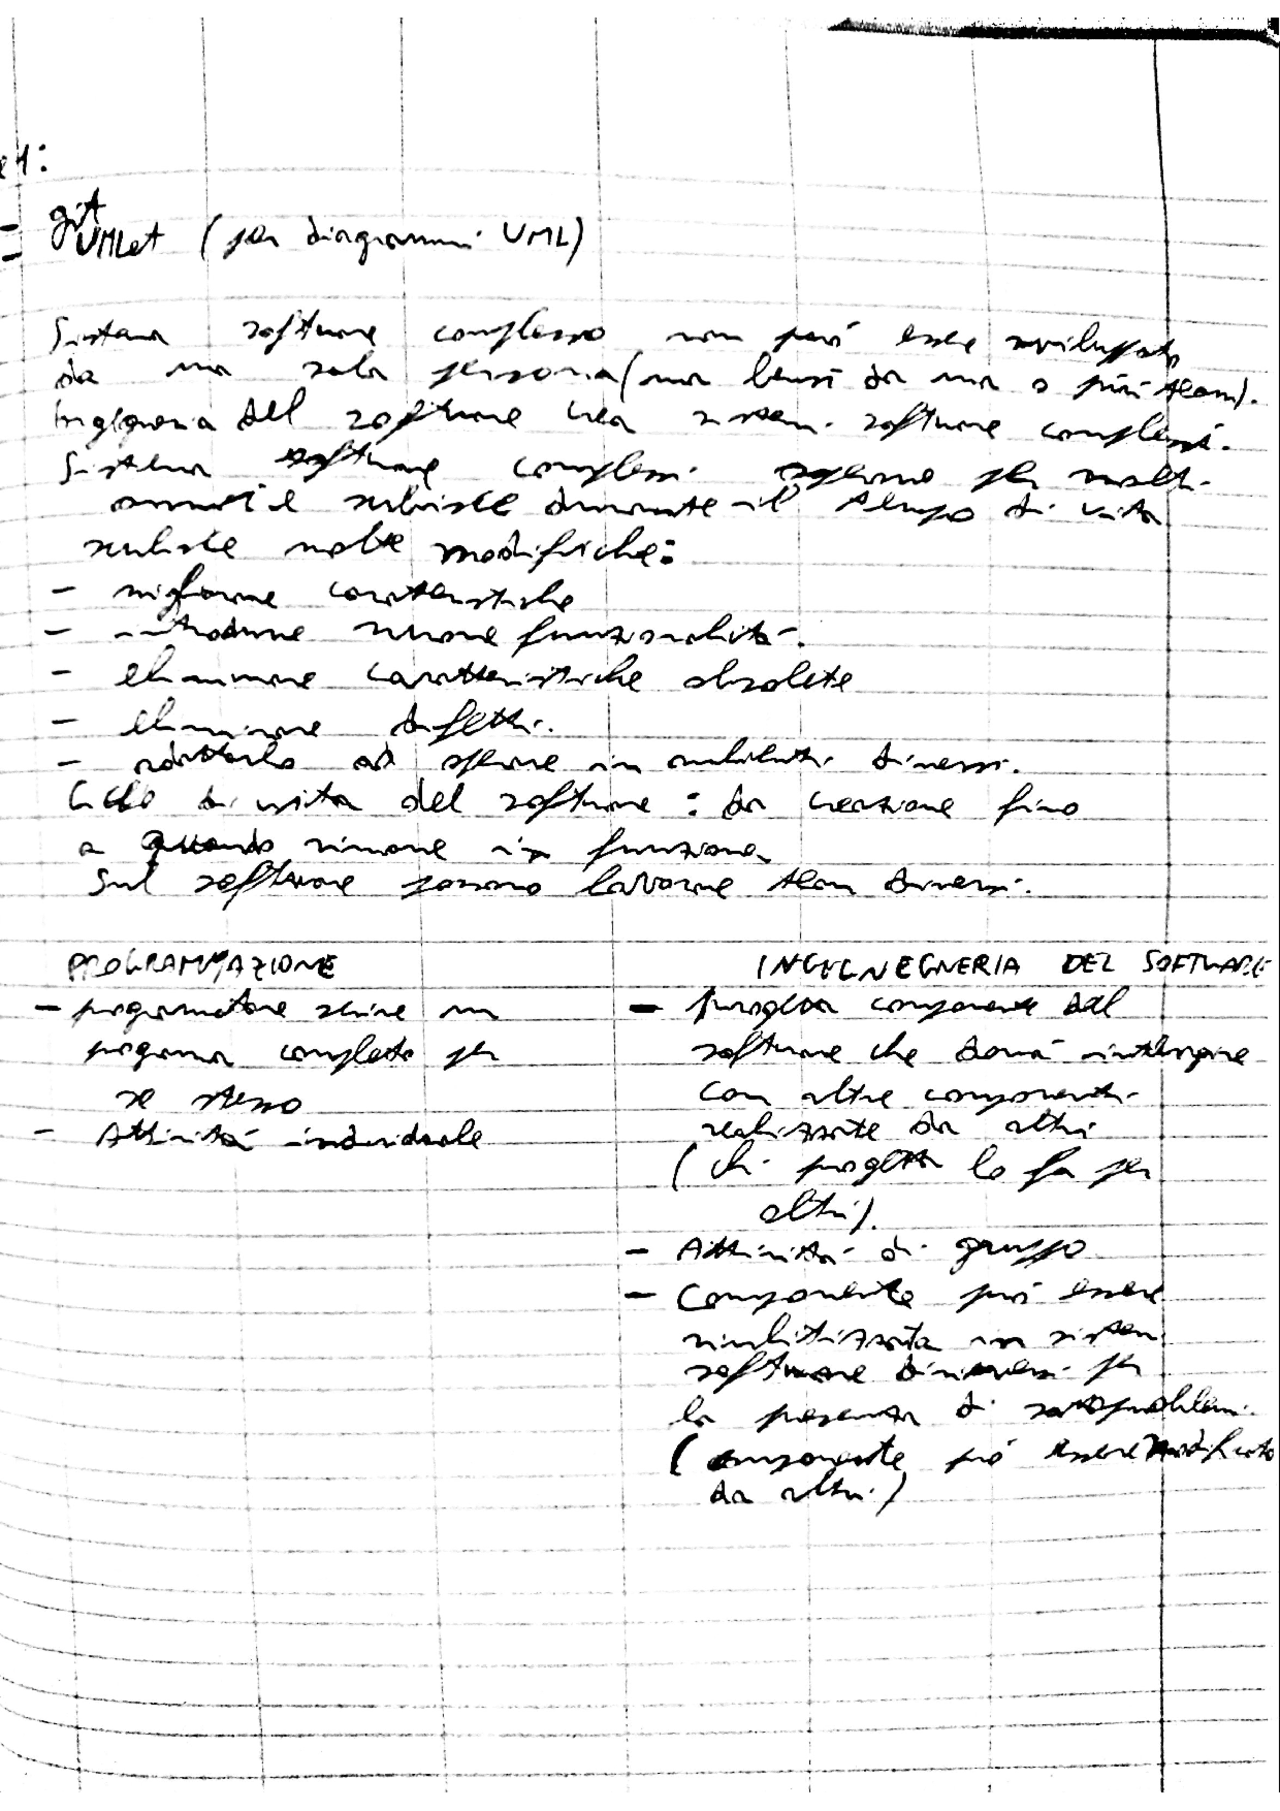 e 1:
- git
- UMLet (per diagrammi UML)
Sistema software complesso non può essere sviluppato
da una sola persona (ma bensì da uno o più team).
Ingegneria del software crea sistemi software complessi.
Sistema software complessi per molti
anni e subisce durante il tempo di vita
subisce molte modifiche:
- migliorare caratteristiche
- introdurre nuove funzionalità.
- eliminare caratteristiche obsolete
- eliminare difetti.
- adattarlo ad operare in ambienti diversi.
Ciclo di vita del software: da creazione fino
a quando rimane in funzione
Sul software possono lavorare team diversi.
PROGRAMMAZIONE
- programmatore scrive un
programma completo per
se stesso
- Attività individuale
INGEGNEGNERIA DEL SOFTWARE
- progetta componente del
software che dovrà interagire
con altre componenti
realizzate da altri
(chi progetta lo fa per
altri).
- Attività di gruppo
- Componente può essere
riutilizzata in sistemi
software diversi per
la presenza di sottoproblemi.
(componente può essere modificato
da altri)